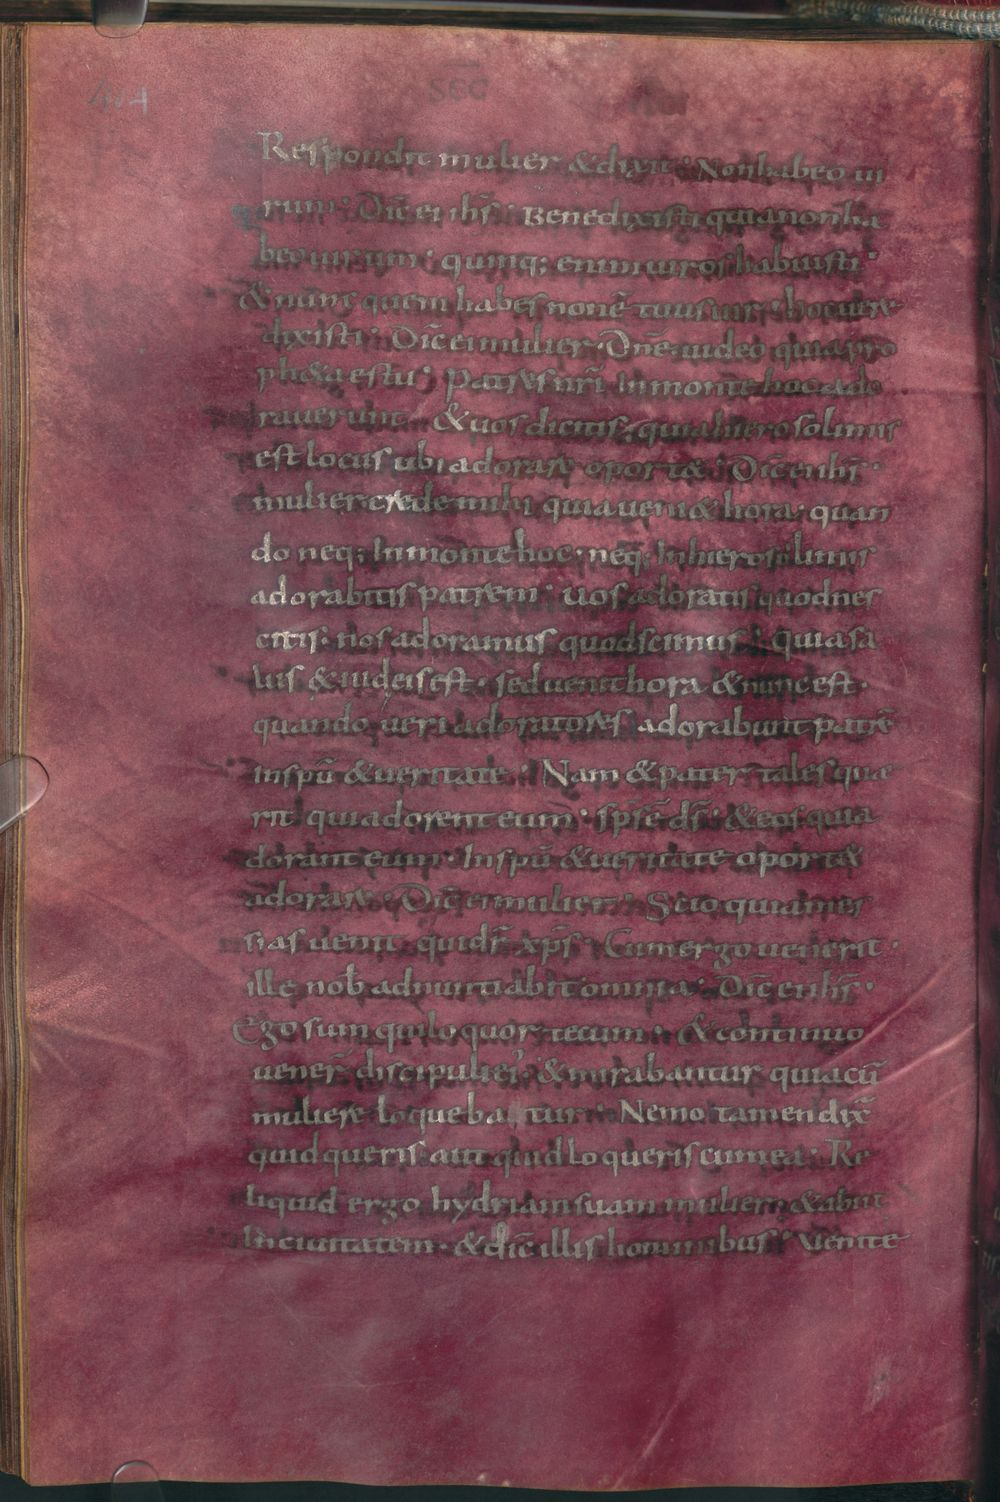 SEC
Respondit mulier & dixit · Non habeo ui
rum · Dic̄ ei ih̄s · Benedixisti quia non ha
beo uirum · quinq; enim uiros habuisti ·
& nunc quem habes non ē tuus uir · hoc uere
dixisti · Dic̄ ei mulier · Dn̄e uideo quia pro
ph&a es tu · Patres ur̄i In monte hoc ado
rauerunt & uos dicitis, quia hierosolimis
est locus ubi adorare oport& · Dic̄ ei ih̄s ·
mulier crede mihi quia ueni& hora, quan
do neq; In monte hoc, neq; In hierosolimis
adorabitis patrem · uos adoratis quod nes
citis · nos adoramus quod scimus · quia sa
lus & iudeis est · sed uenit hora & nunc est ·
quando ueri adoratores adorabunt patrē
In sp̄u & ueritate · Nam & pater tales quae
rit qui adorent eum · sp̄s ē d̄s · & eos qui a
dorant eum · In sp̄u & ueritate oport&
adorare · Dic̄ ei mulier · Scio quia mes
sias uenit qui dr̄ xp̄s · Cum ergo uenerit ·
ille nob̄ adnuntiabit omnia · Dic̄ ei ih̄s ·
Ego sum qui loquor tecum · & continuo
uener̄ discipuli ei' & mirabantur quia cū
muliere loquebatur · Nemo tamen dix̄
quid queris aut quid loqueris cum ea · Re
liquid ergo hydriam suam mulier & abiit
In ciuitatem · & dic̄ illis hominibus · Venite